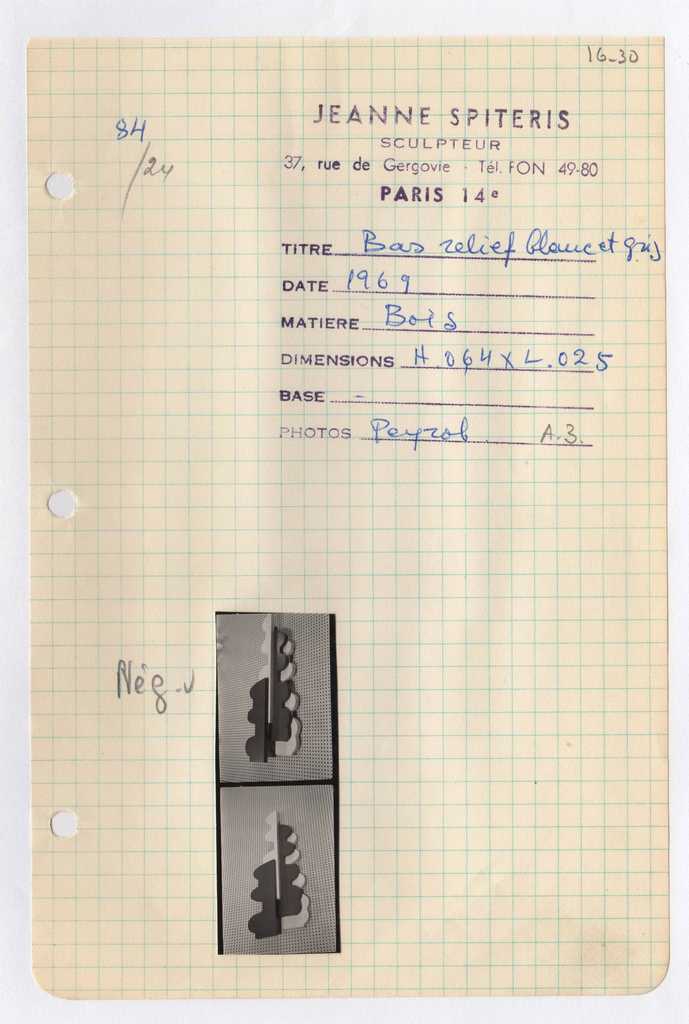 16-30
84
/24
JEANNE SPITERIS
SCULPTEUR
37, rue de Gergovie - Tél. FON 49-80
PARIS 14e
TITRE Bas relief blanc et gris
DATE 1969
MATIERE Bois
DIMENSIONS H. 064 x L. 025
BASE -
PHOTOS Peyrol A.3.
Nég. v